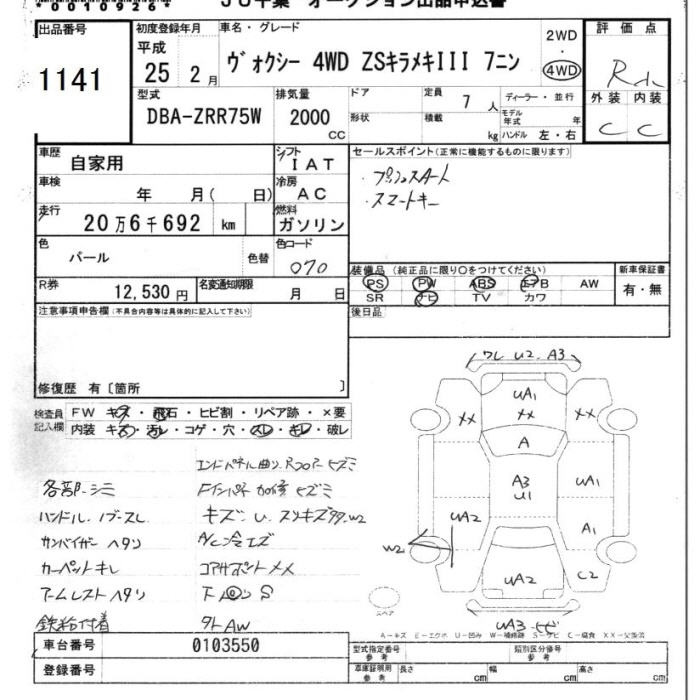 *0010926*
JU千葉 オークション出品申込書
出品番号
1141
初度登録年月
平成
25 2月
車名・グレード
ヴォクシー 4WD ZSキラメキIII 7ニン
2WD
・
4WD
評価点
外装 内装
C C
型式
DBA-ZRR75W
排気量
2000
CC
ドア
形状
定員
7人
積載
kg
ディーラー・並行
モデル年式 年
ハンドル 左・右
車歴
自家用
シフト
IAT
車検
年 月( 日)
冷房
AC
走行
20万6千692 km
燃料
ガソリン
色
パール
色替
色コード
070
R券
12,530円
名変通知期限
月 日
セールスポイント(正常に機能するものに限ります)
・プッシュスタート
・スマートキー
装備品(純正品に限り○をつけてください)
PS PW ABS エアB AW
SR ナビ TV カワ
新車保証書
有・無
後日品
注意事項申告欄(不具合内容等は具体的に記入して下さい)
修復歴 有〔箇所 〕
検査員記入欄
FW キズ・飛石・ヒビ割・リペア跡・×要
内装 キズ・汚レ・コゲ・穴・スレ・キレ・破レ
エンドパネル曲り
各部シミ
ハンドル・ノブスレ
キズ・U・スリキズ
サンバイザーヘタリ
A/C冷エズ
カーペットキレ
コアサポートメメ
アームレストヘタリ
鉄粉付着
タトAW
ワレ U2. A3
UA1
XX XX XX
A
A3
U1
UA1
UA2
A1
W2
UA2
C2
スペア
UA3
A-キズ E-エクボ U-凹み W-補修跡 S-サビ C-腐食 XX-交換済
車台番号
0103550
登録番号
型式指定番号
参考
類別区分番号
参考
車庫証明用
参考
長さ cm
幅 cm
高さ cm